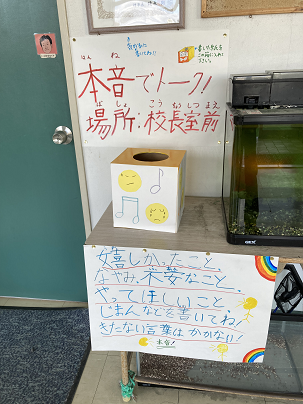 本音でトーク!
ほんね
場所:校長室前
ばしょ こうちょうしつまえ
嬉しかったこと、
なやみ、不安なこと、
やってほしいこと
じまんなどを書いてね!
きたない言葉はかかない!
本音!
GEX